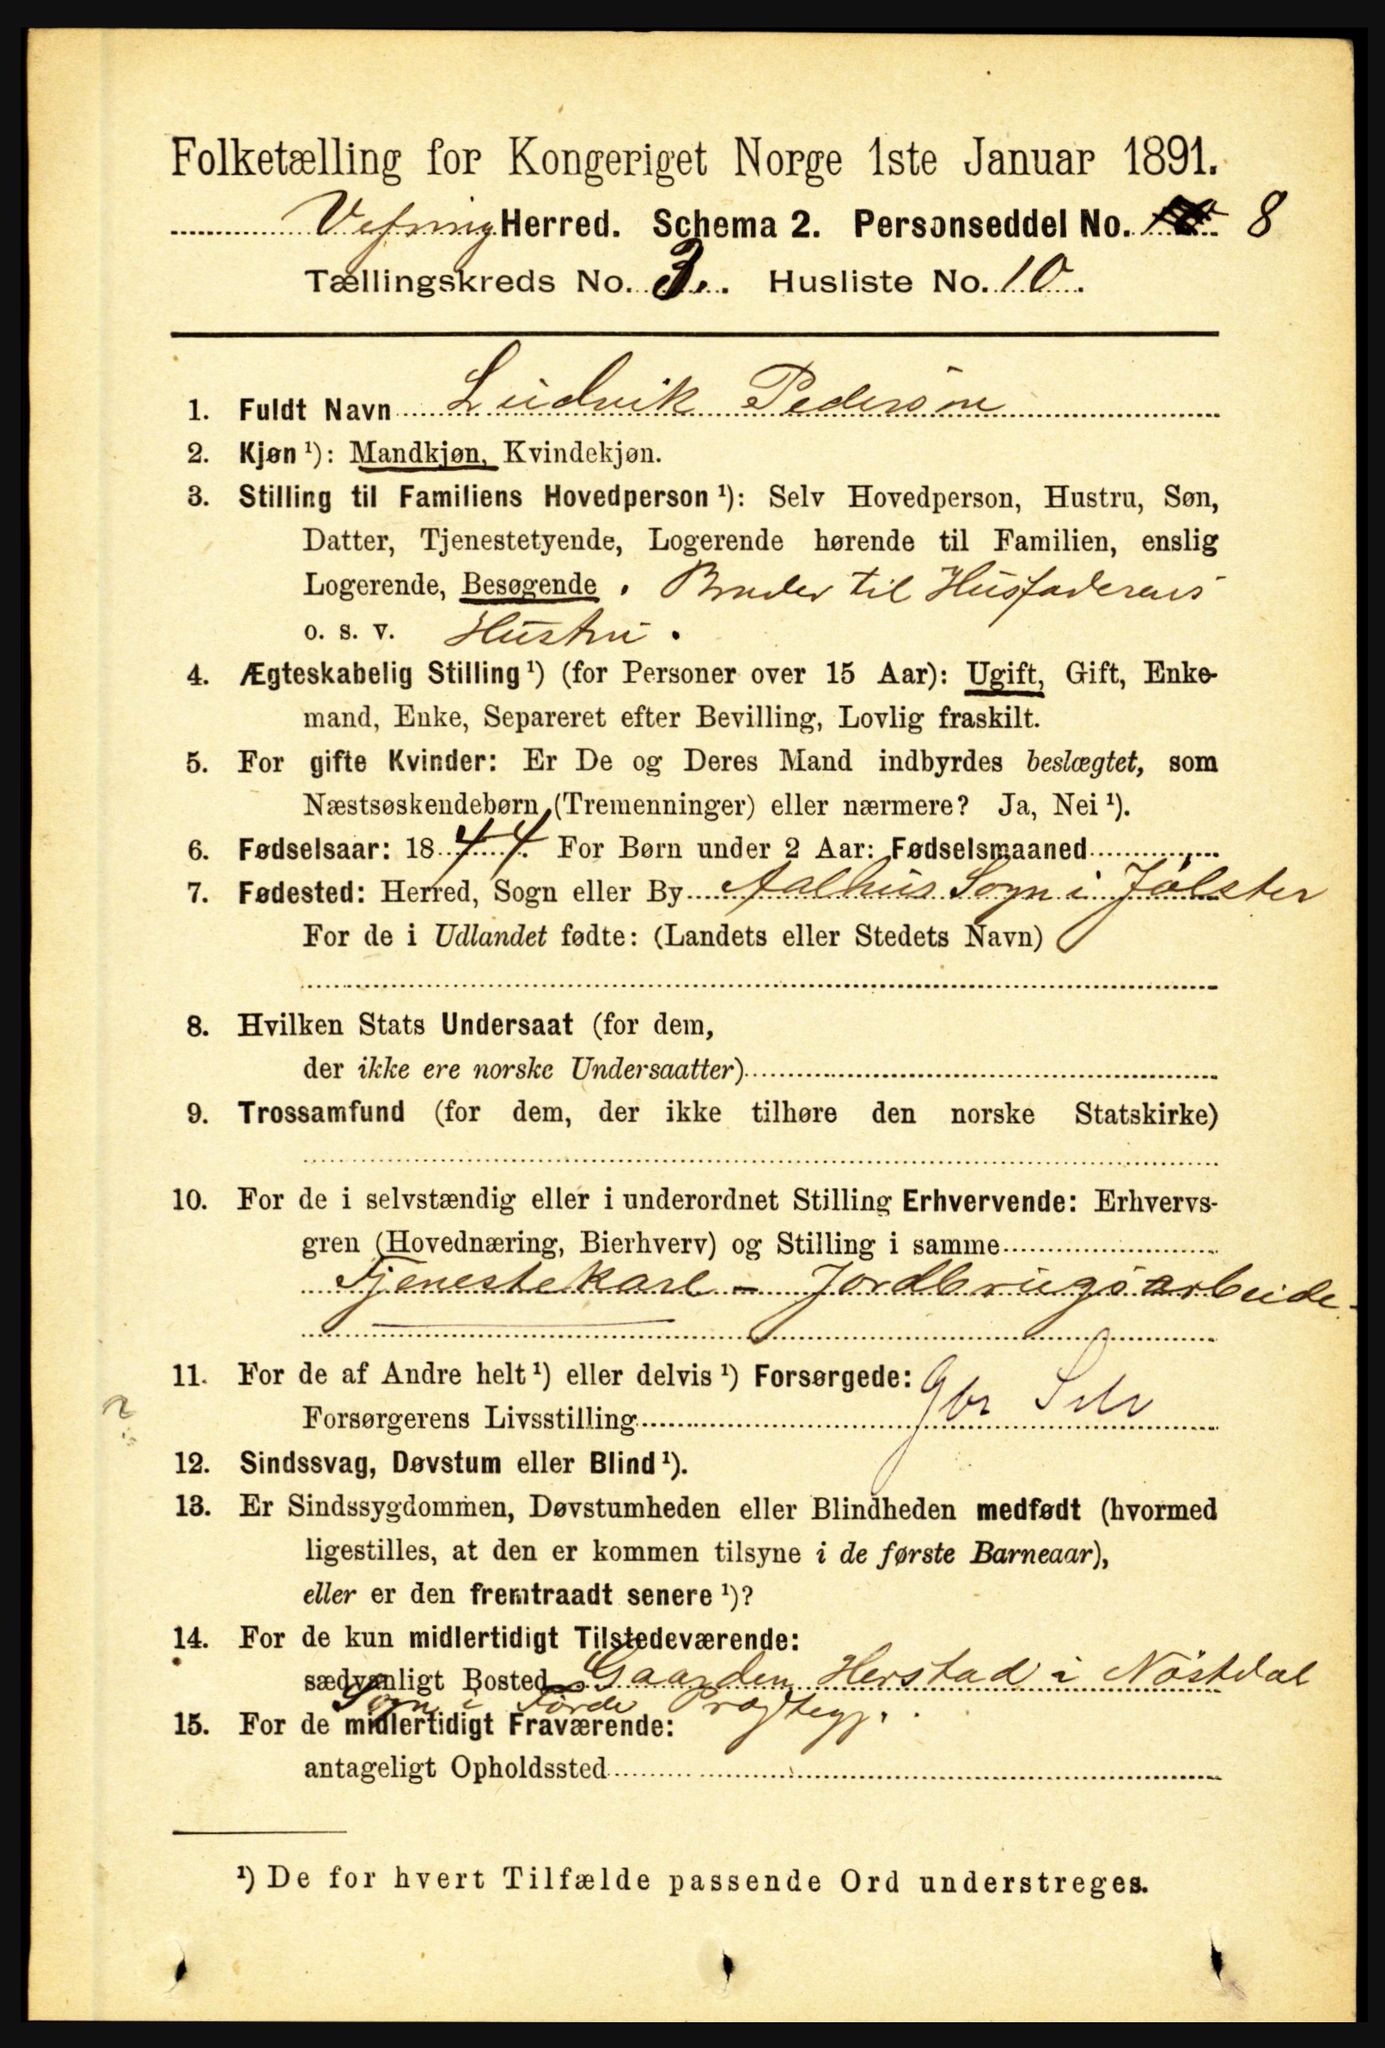 Folketælling for Kongeriget Norge 1ste Januar 1891.
Vefring Herred. Schema 2. Personseddel No. 8
Tællingskreds No. 3. Husliste No. 10.
1. Fuldt Navn Ludvik Pedersøn
2. Kjøn ¹): Mandkjøn, Kvindekjøn.
3. Stilling til Familiens Hovedperson ¹): Selv Hovedperson, Hustru, Søn,
Datter, Tjenestetyende, Logerende hørende til Familien, enslig
Logerende, Besøgende . Broder til Husfaderens
o. s. v. Hustru .
4. Ægteskabelig Stilling ¹) (for Personer over 15 Aar): Ugift, Gift, Enke-
mand, Enke, Separeret efter Bevilling, Lovlig fraskilt.
5. For gifte Kvinder: Er De og Deres Mand indbyrdes beslægtet, som
Næstsøskendebørn (Tremenninger) eller nærmere? Ja, Nei ¹).
6. Fødselsaar: 1844. For Børn under 2 Aar: Fødselsmaaned
7. Fødested: Herred, Sogn eller By Aalhus Sogn i Jølster
For de i Udlandet fødte: (Landets eller Stedets Navn)
8. Hvilken Stats Undersaat (for dem,
der ikke ere norske Undersaatter)
9. Trossamfund (for dem, der ikke tilhøre den norske Statskirke)
10. For de i selvstændig eller i underordnet Stilling Erhvervende: Erhvervs-
gren (Hovednæring, Bierhverv) og Stilling i samme
Tjenestekarl - Jordbrugsarbeide.
11. For de af Andre helt ¹) eller delvis ¹) Forsørgede:
Forsørgerens Livsstilling Gbr Selv
12. Sindssvag, Døvstum eller Blind ¹).
13. Er Sindssygdommen, Døvstumheden eller Blindheden medfødt (hvormed
ligestilles, at den er kommen tilsyne i de første Barneaar),
eller er den fremtraadt senere ¹)?
14. For de kun midlertidigt Tilstedeværende:
sædvanligt Bosted Gaarden Herstad i Nøstdal
Sogn i Førde Prægtegj.
15. For de midlertidigt Fraværende:
antageligt Opholdssted
¹) De for hvert Tilfælde passende Ord understreges.